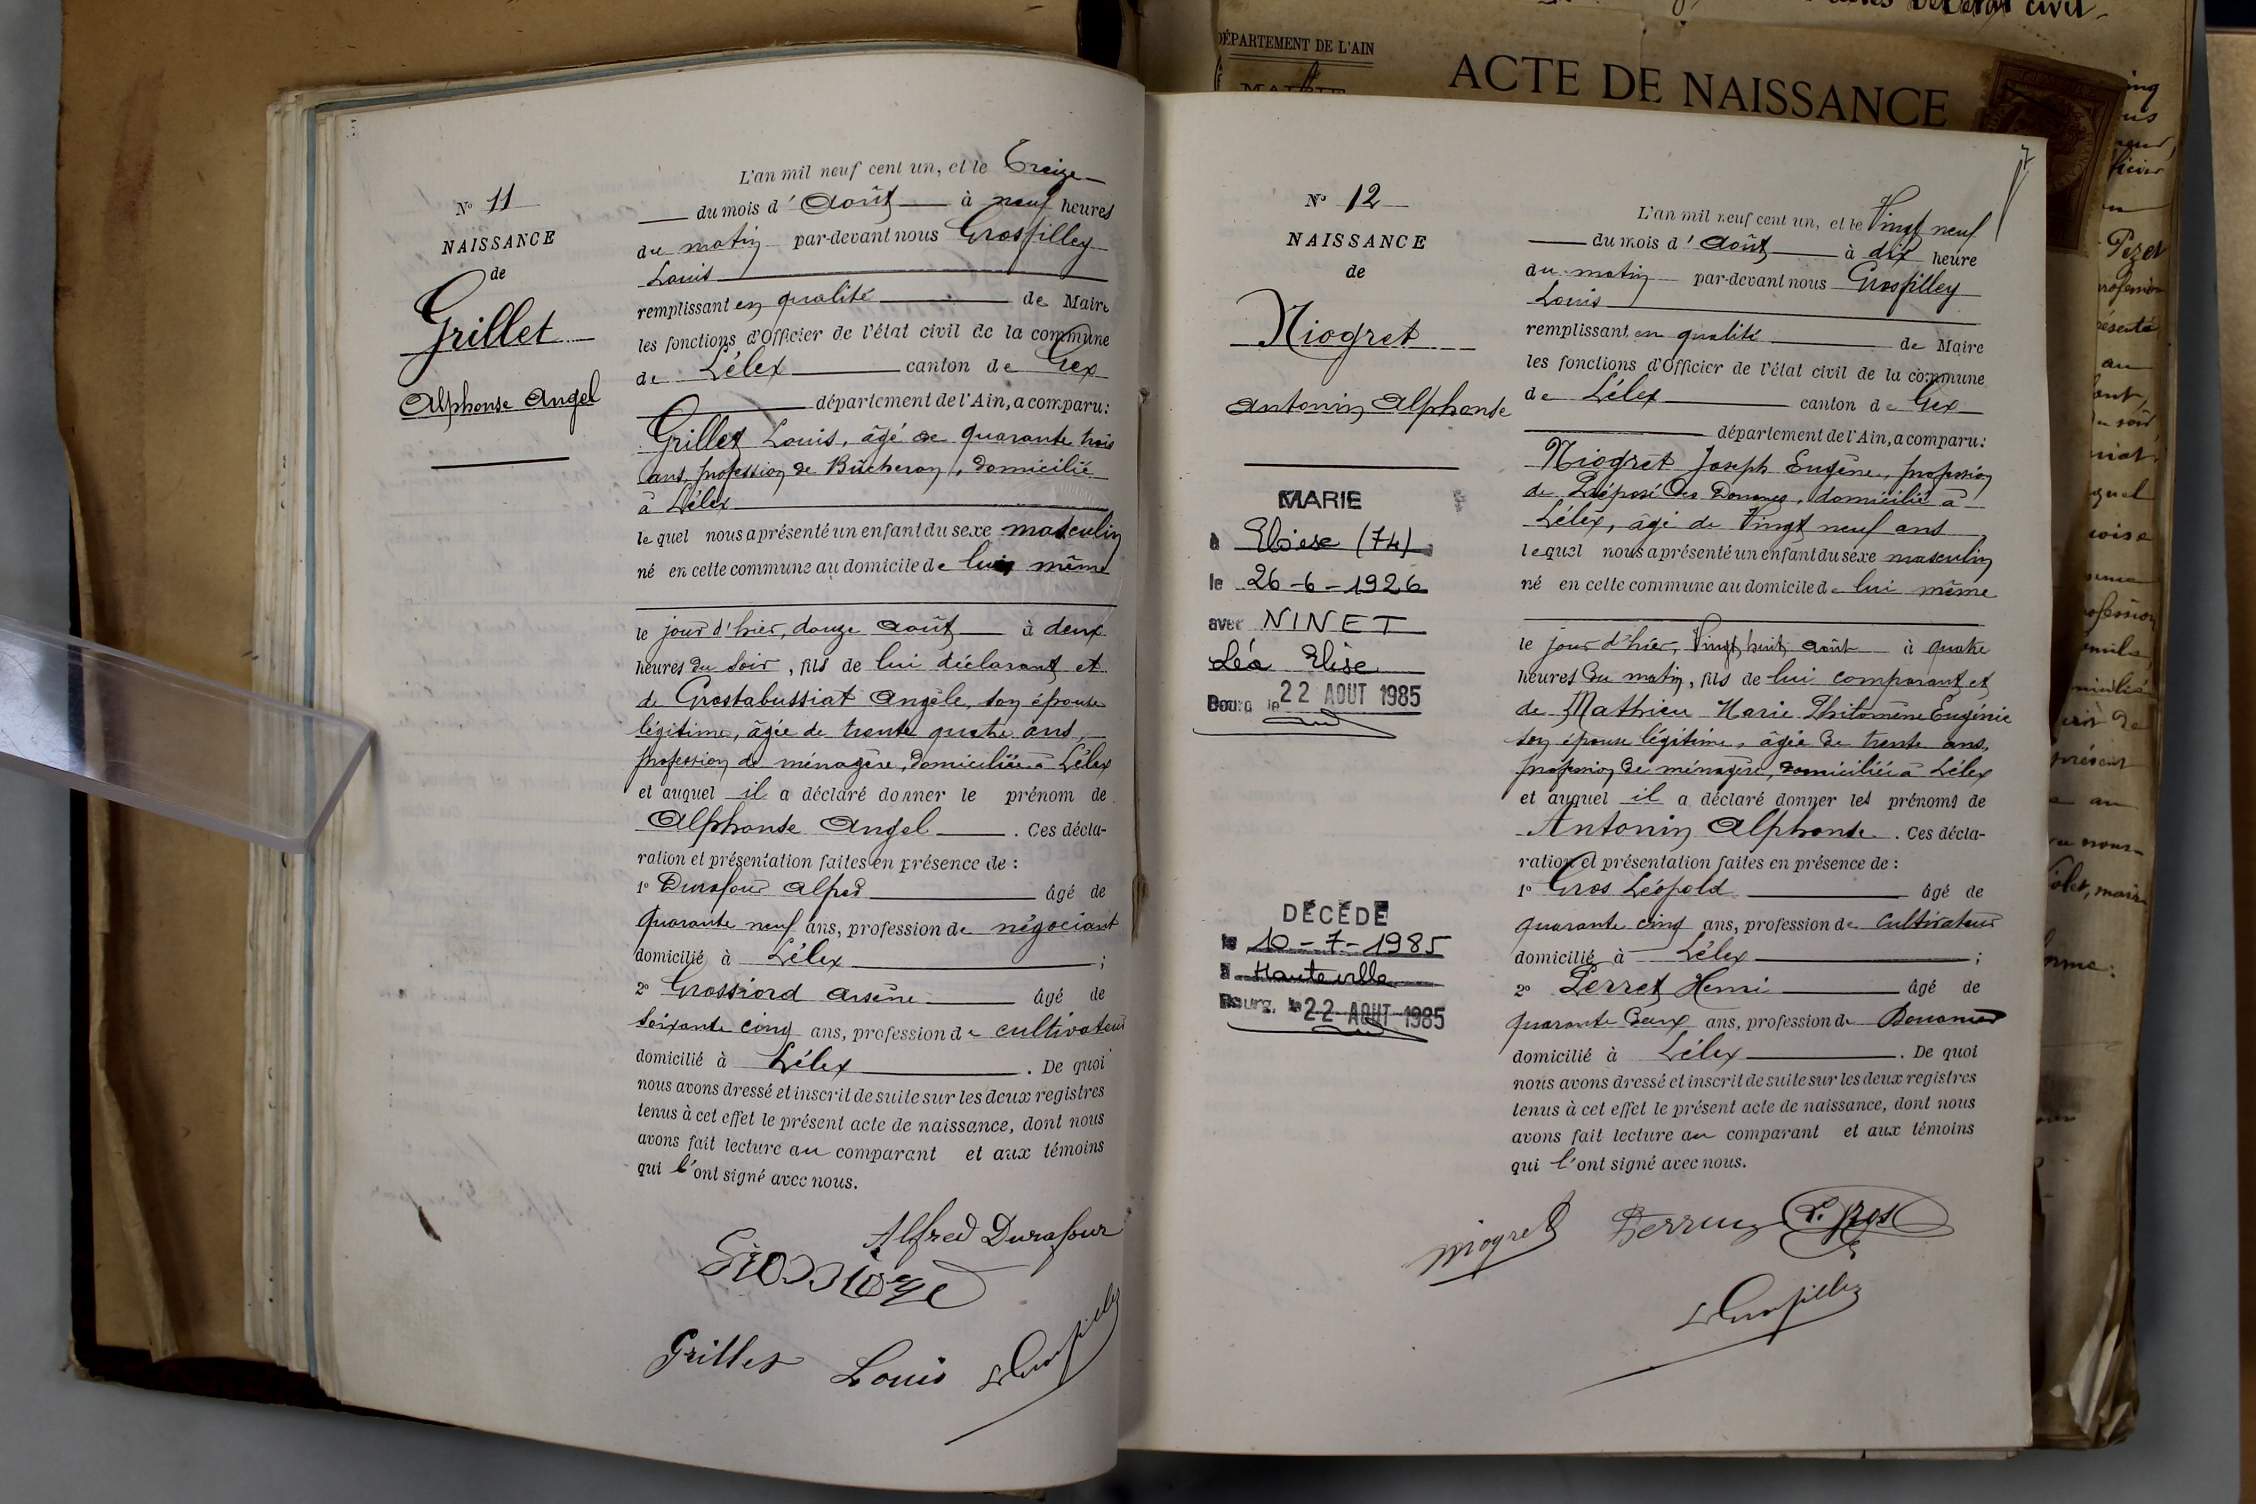 N° 11
NAISSANCE
de
Grillet
Alphonse Angel
L'an mil neuf cent un, et le Treize
du mois d'Août à neuf heures
du matin par-devant nous Grosfilley
Louis
remplissant en qualité de Maire
les fonctions d'Officier de l'état civil de la commune
de Lélex canton de Gex
département de l'Ain, a comparu:
Grillet Louis, âgé de quarante trois
ans, profession de Bûcheron, domicilié
à Lélex
lequel nous a présenté un enfant du sexe masculin
né en cette commune au domicile de lui même
le jour d'hier, douze août à deux
heures du soir, fils de lui déclarant et
de Grostabussiat Angèle, son épouse
légitime, âgée de trente quatre ans,
profession de ménagère, domiciliée à Lélex
et auquel il a déclaré donner le prénom de
Alphonse Angel. Ces décla-
ration et présentation faites en présence de :
1° Durafour Alfred âgé de
quarante neuf ans, profession de négociant
domicilié à Lélex ;
2° Grossiord Arsène âgé de
soixante cinq ans, profession de cultivateur
domicilié à Lélex. De quoi
nous avons dressé et inscrit de suite sur les deux registres
tenus à cet effet le présent acte de naissance, dont nous
avons fait lecture au comparant et aux témoins
qui l'ont signé avec nous.
Alfred Durafour
Grossiord
Grillet Louis L Grosfilley
DÉPARTEMENT DE L'AIN
MAIRIE
ACTE DE NAISSANCE
7
N° 12
NAISSANCE
de
Niogret
Antonin Alphonse
MARIE
à Eloise (74)
le 26-6-1926
avec NINET
Léa Elise
Bourg le 22 AOUT 1985
DÉCÉDÉ
le 10-7-1985
à Hauteville
Bourg, le 22 AOUT 1985
L'an mil neuf cent un, et le Vingt neuf
du mois d'Août à dix heure
du matin par-devant nous Grosfilley
Louis
remplissant en qualité de Maire
les fonctions d'Officier de l'état civil de la commune
de Lélex canton de Gex
département de l'Ain, a comparu:
Niogret Joseph Eugène, profession
de Préposé des Douanes, domicilié à
Lélex, âgé de Vingt neuf ans
lequel nous a présenté un enfant du sexe masculin
né en cette commune au domicile de lui même
le jour d'hier, Vingt huit août à quatre
heures du matin, fils de lui comparant et
de Mathieu Marie Philomène Eugénie
son épouse légitime, âgée de trente ans,
profession de ménagère, domiciliée à Lélex
et auquel il a déclaré donner les prénoms de
Antonin Alphonse. Ces décla-
ration et présentation faites en présence de :
1° Gros Léopold âgé de
quarante cinq ans, profession de cultivateur
domicilié à Lélex ;
2° Perret Henri âgé de
quarante deux ans, profession de Douanier
domicilié à Lélex. De quoi
nous avons dressé et inscrit de suite sur les deux registres
tenus à cet effet le présent acte de naissance, dont nous
avons fait lecture au comparant et aux témoins
qui l'ont signé avec nous.
Niogret L. Gros
L Grosfilley